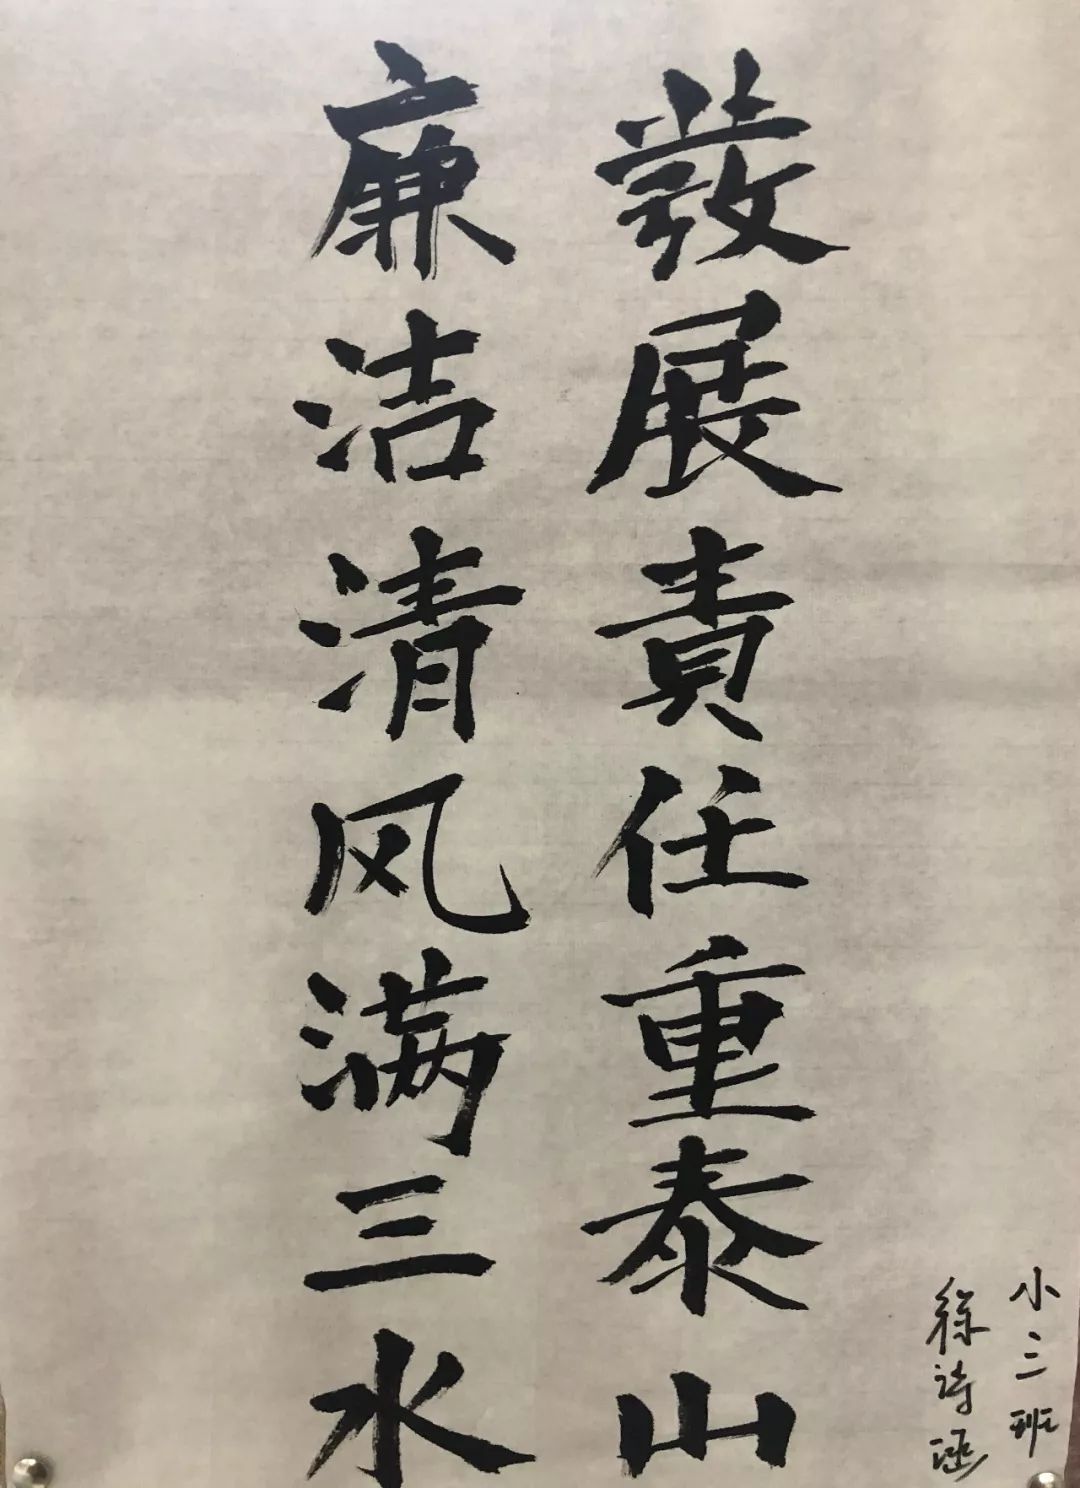 發展責任重泰山
廉洁清风满三水
小三班
徐诗涵